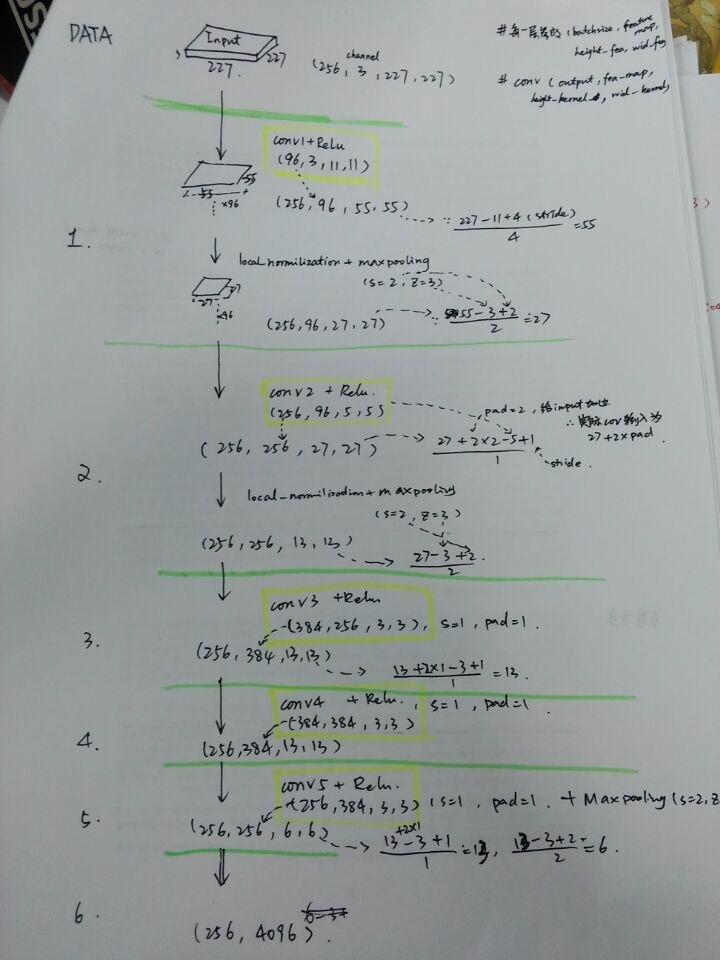 DATA
Input
227
227
channel
(256, 3, 227, 227)
#每一层为的 (batchsize, feature
map,
height-fea, wid-fea)
# conv (output, fea-map,
height-kernel, wid-kernel)
conv1+Relu
(96, 3, 11, 11)
55
55
×96
(256, 96, 55, 55)
∵ 227-11+4 (stride)
4
=55
1.
local normilization + maxpooling
(s=2, z=3)
27
27
×96
(256, 96, 27, 27)
∵ 55-3+2
2
=27
conv2 + Relu.
(256, 96, 5, 5)
pad=2, 给input
∴实际cov输入为
27+2×pad
(256, 256, 27, 27)
27+2×2-5+1
1
stride.
2.
local_normilization + maxpooling
(s=2, z=3)
(256, 256, 13, 13)
27-3+2.
2
conv3 +Relu
(384, 256, 3, 3), s=1, pad=1.
3.
(256, 384, 13, 13)
13+2×1-3+1
1
=13.
conv4 + Relu. , s=1, pad=1.
(384, 384, 3, 3)
4.
(256, 384, 13, 13)
conv5 + Relu.
(256, 384, 3, 3) (s=1, pad=1. + Maxpooling (s=2, z
5.
(256, 256, 6, 6)
+2×1
13-3+1
1
=13, 13-3+2
2
=6.
6.
(256, 4096).